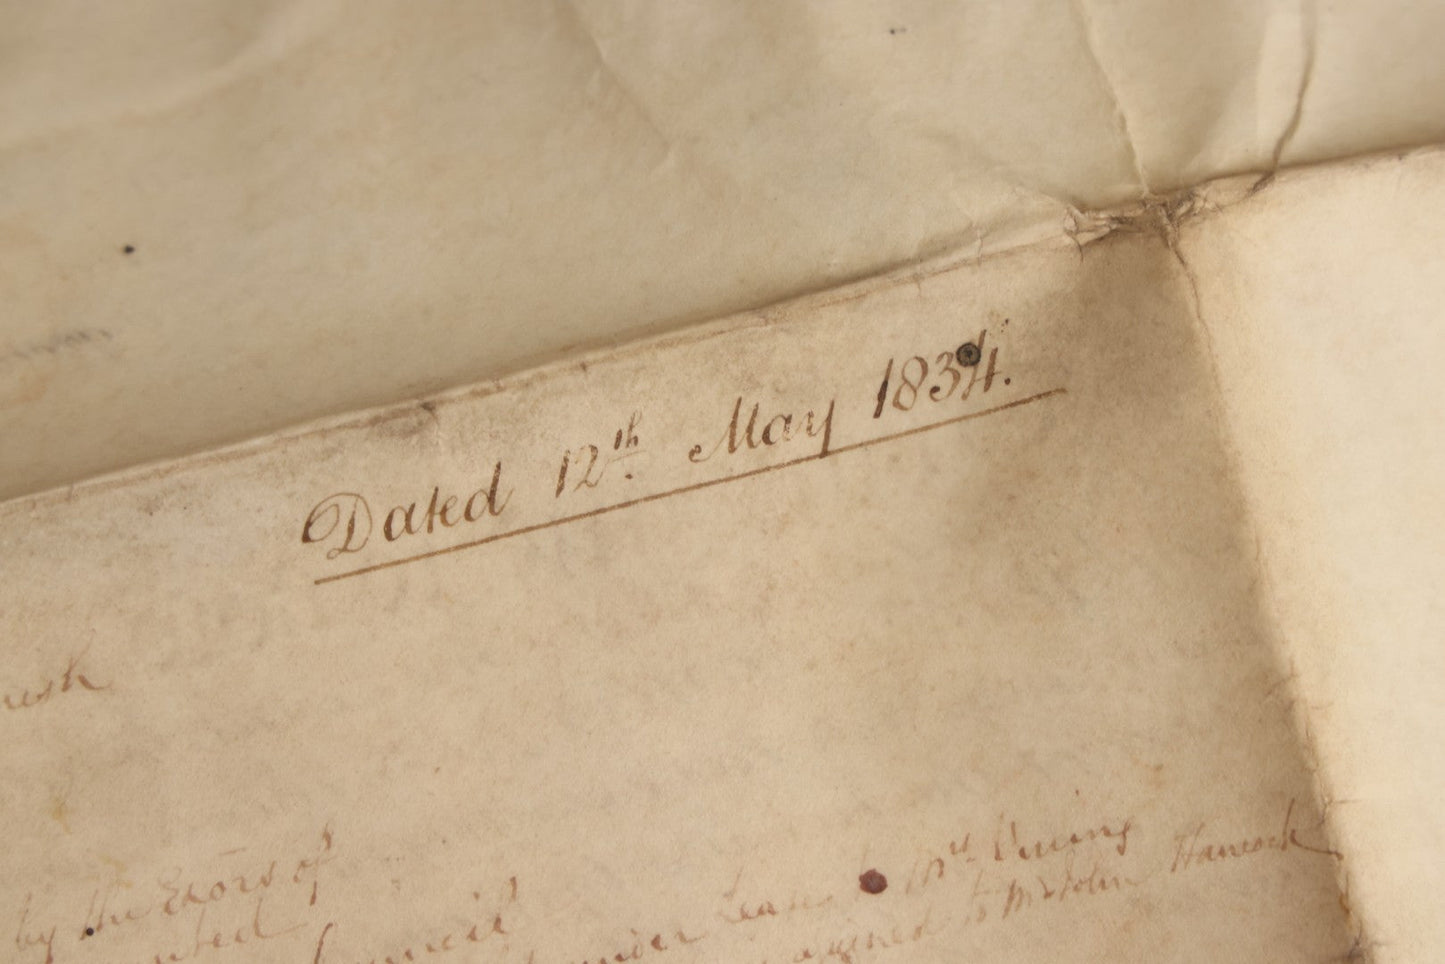 Dated 12th. May 1834.
by the Exors of
Council
under Lease to Mrs. Vining
assigned to Mr John Hancock